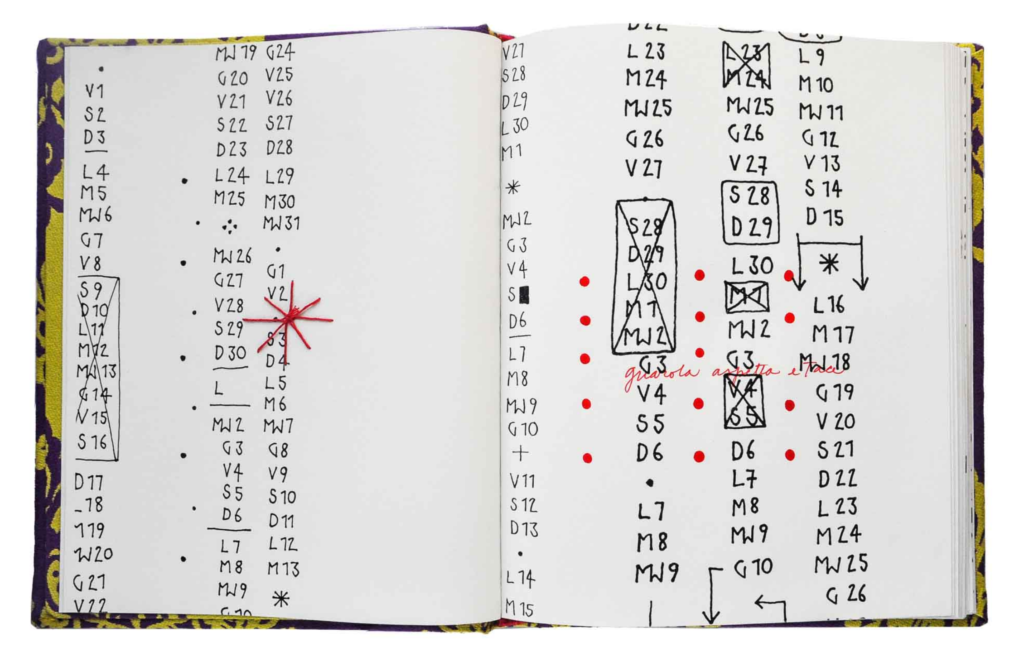 V1
S2
D3
L4
M5
MW6
G7
V8
S9
D10
L11
M12
MW13
G14
V15
S16
D17
18
19
W20
G21
V22
MW19
G20
V21
S22
D23
L24
M25
MW26
G27
V28
S29
D30
L
MW2
G3
V4
S5
D6
L7
M8
MW9
G10
G24
V25
V26
S27
D28
L29
M30
MW31
G1
V2
S3
D4
L5
M6
MW7
G8
V9
S10
D11
L12
M13
*
V27
S28
D29
L30
M1
*
MW2
G3
V4
S
D6
L7
M8
MW9
G10
+
V11
S12
D13
L14
M15
D22
L23
M24
MW25
G26
V27
S28
D29
L30
M1
MW2
G3
V4
S5
D6
L7
M8
MW9
L23
M24
MW25
G26
V27
S28
D29
L30
M1
MW2
G3
V4
S5
D6
L7
M8
MW9
G10
L9
M10
MW11
G12
V13
S14
D15
*
L16
M17
MW18
G19
V20
S21
D22
L23
M24
MW25
G26
guarola aspetta e taci